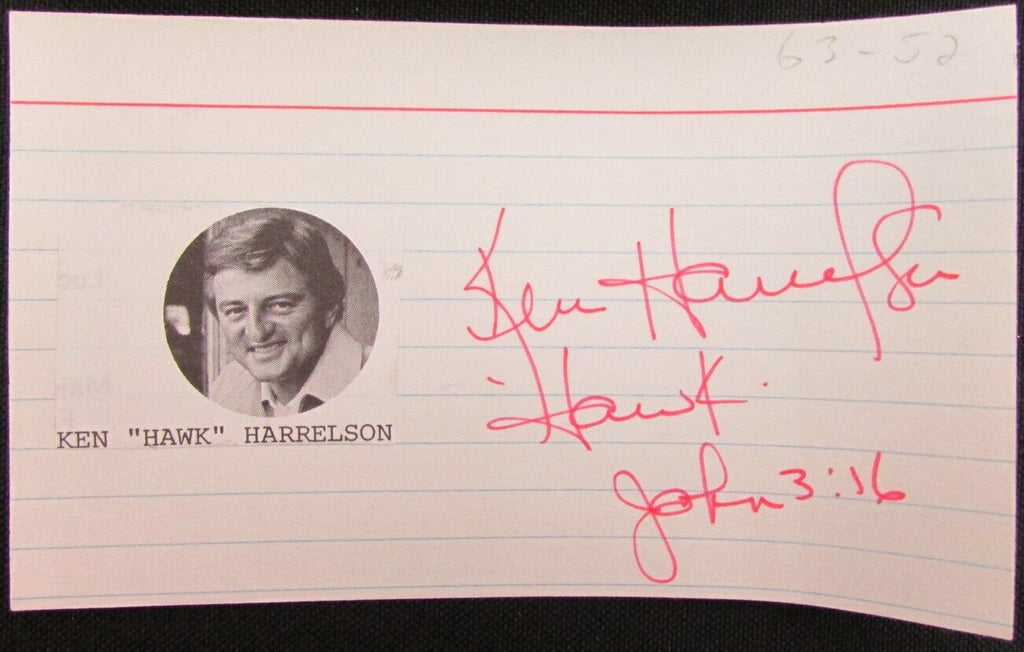 63-52
Ken Harrelson
"Hawk"
John 3:16
KEN "HAWK" HARRELSON